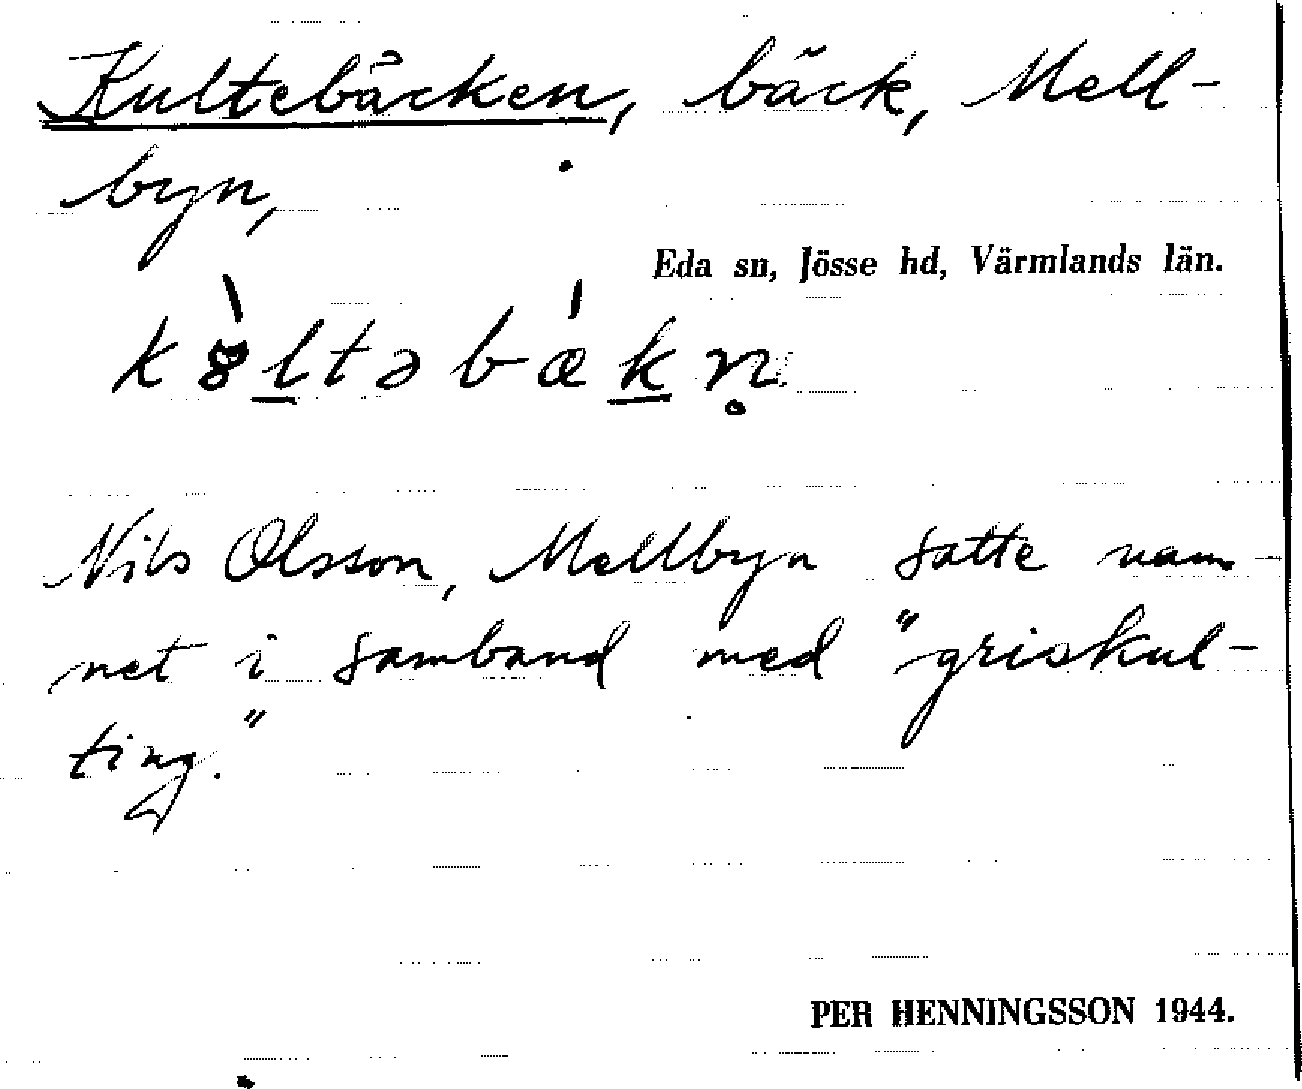 Kultebäcken, bäck, Mell-
byn,
Eda sn, Jösse hd, Värmlands län.
k8̀ltəbǽkn̥
Nils Olsson, Mellbyn satte nam-
net i samband med "griskul-
ting."
PER HENNINGSSON 1944.